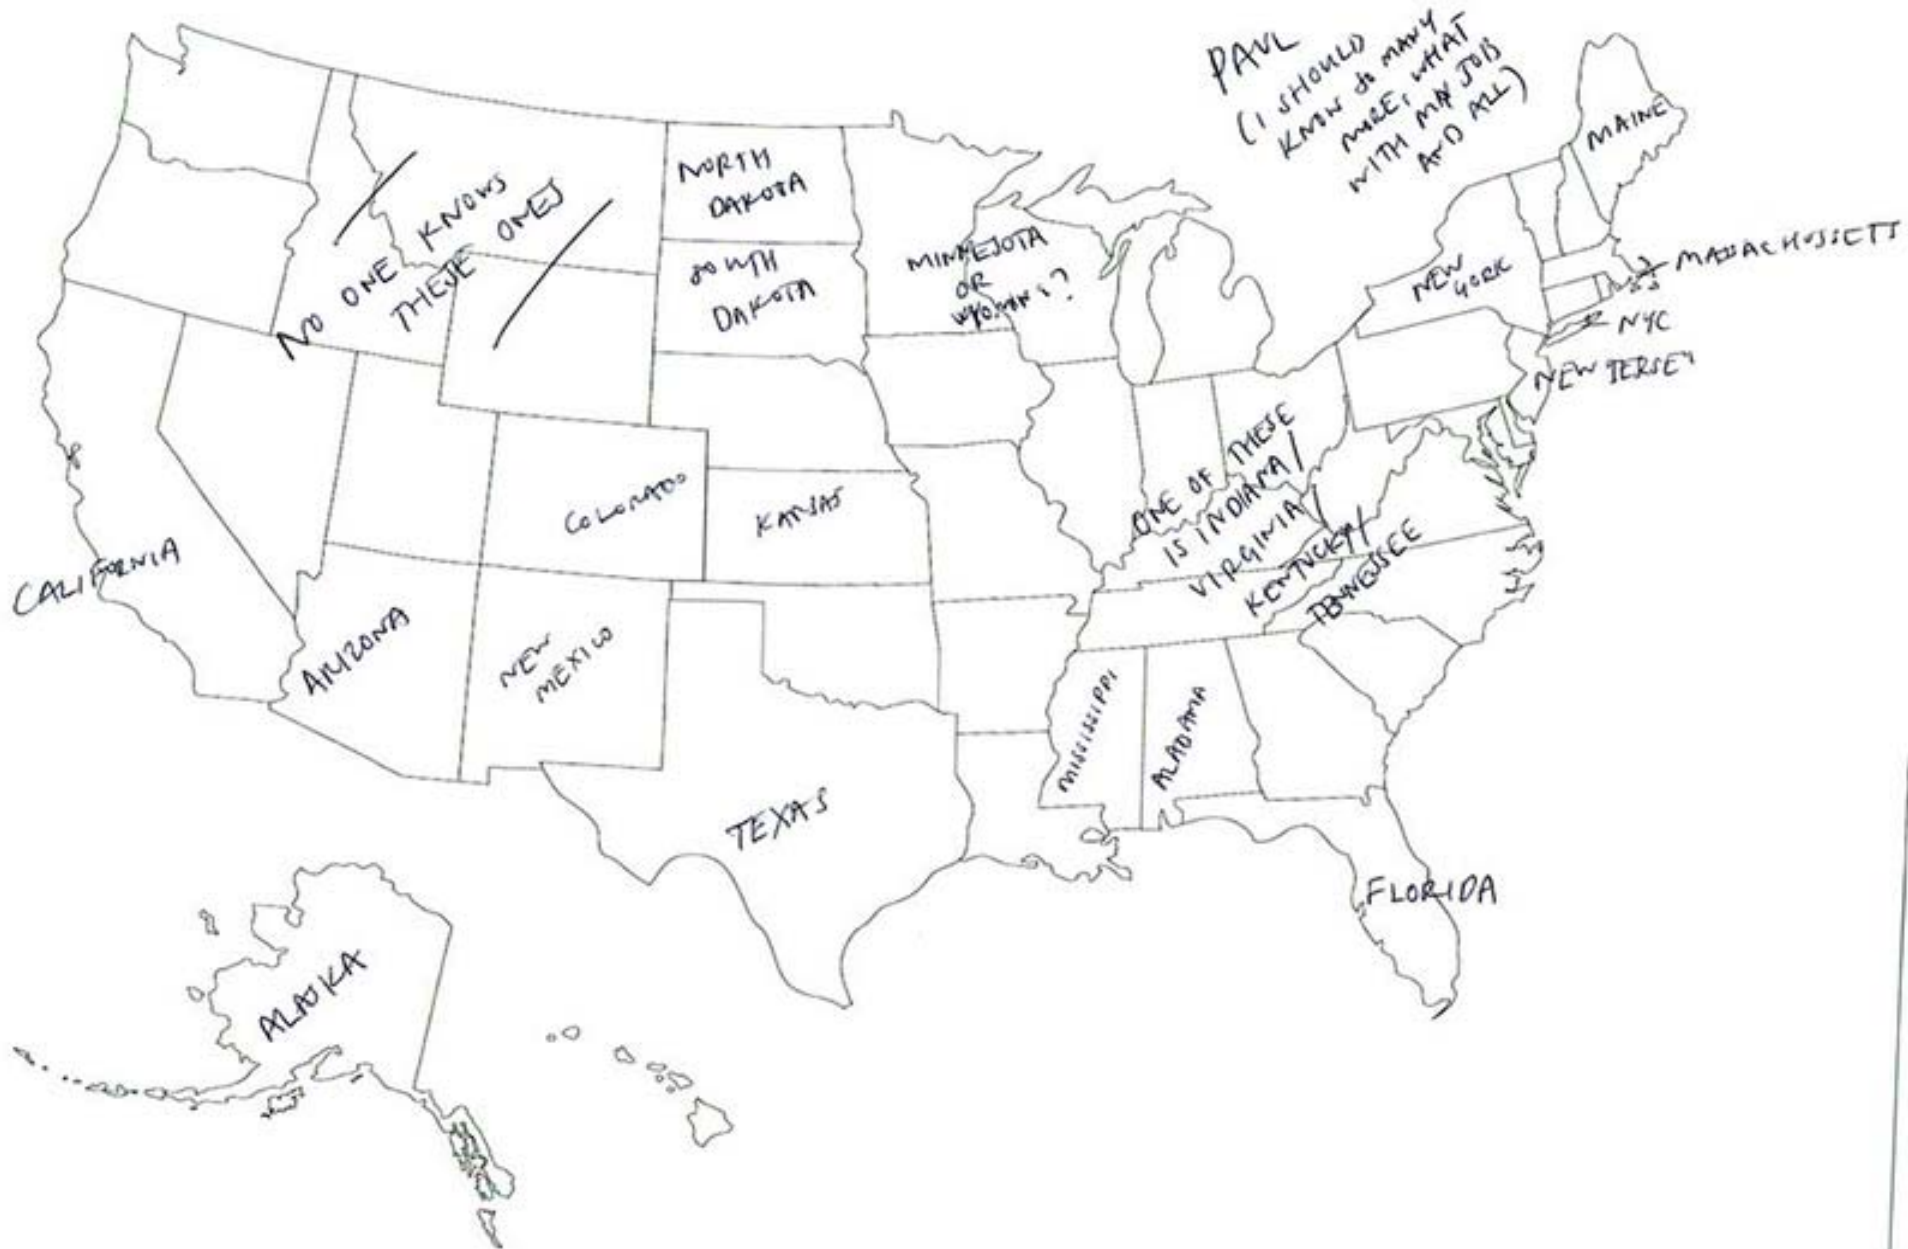 PAUL
(I SHOULD
KNOW SO MANY
MORE, WHAT
WITH MY JOB
AND ALL)
MAINE
NO ONE KNOWS
THESE ONES
NORTH
DAKOTA
SOUTH
DAKOTA
MINNESOTA
OR
?
NEW
YORK
MASSACHUSSETTS
NYC
NEW JERSEY
ONE OF THESE
IS INDIANA/
VIRGINIA/
KENTUCKY/
TENNESSEE
COLORADO
KANSAS
CALIFORNIA
ARIZONA
NEW
MEXICO
MISSISSIPPI
ALABAMA
TEXAS
FLORIDA
ALASKA